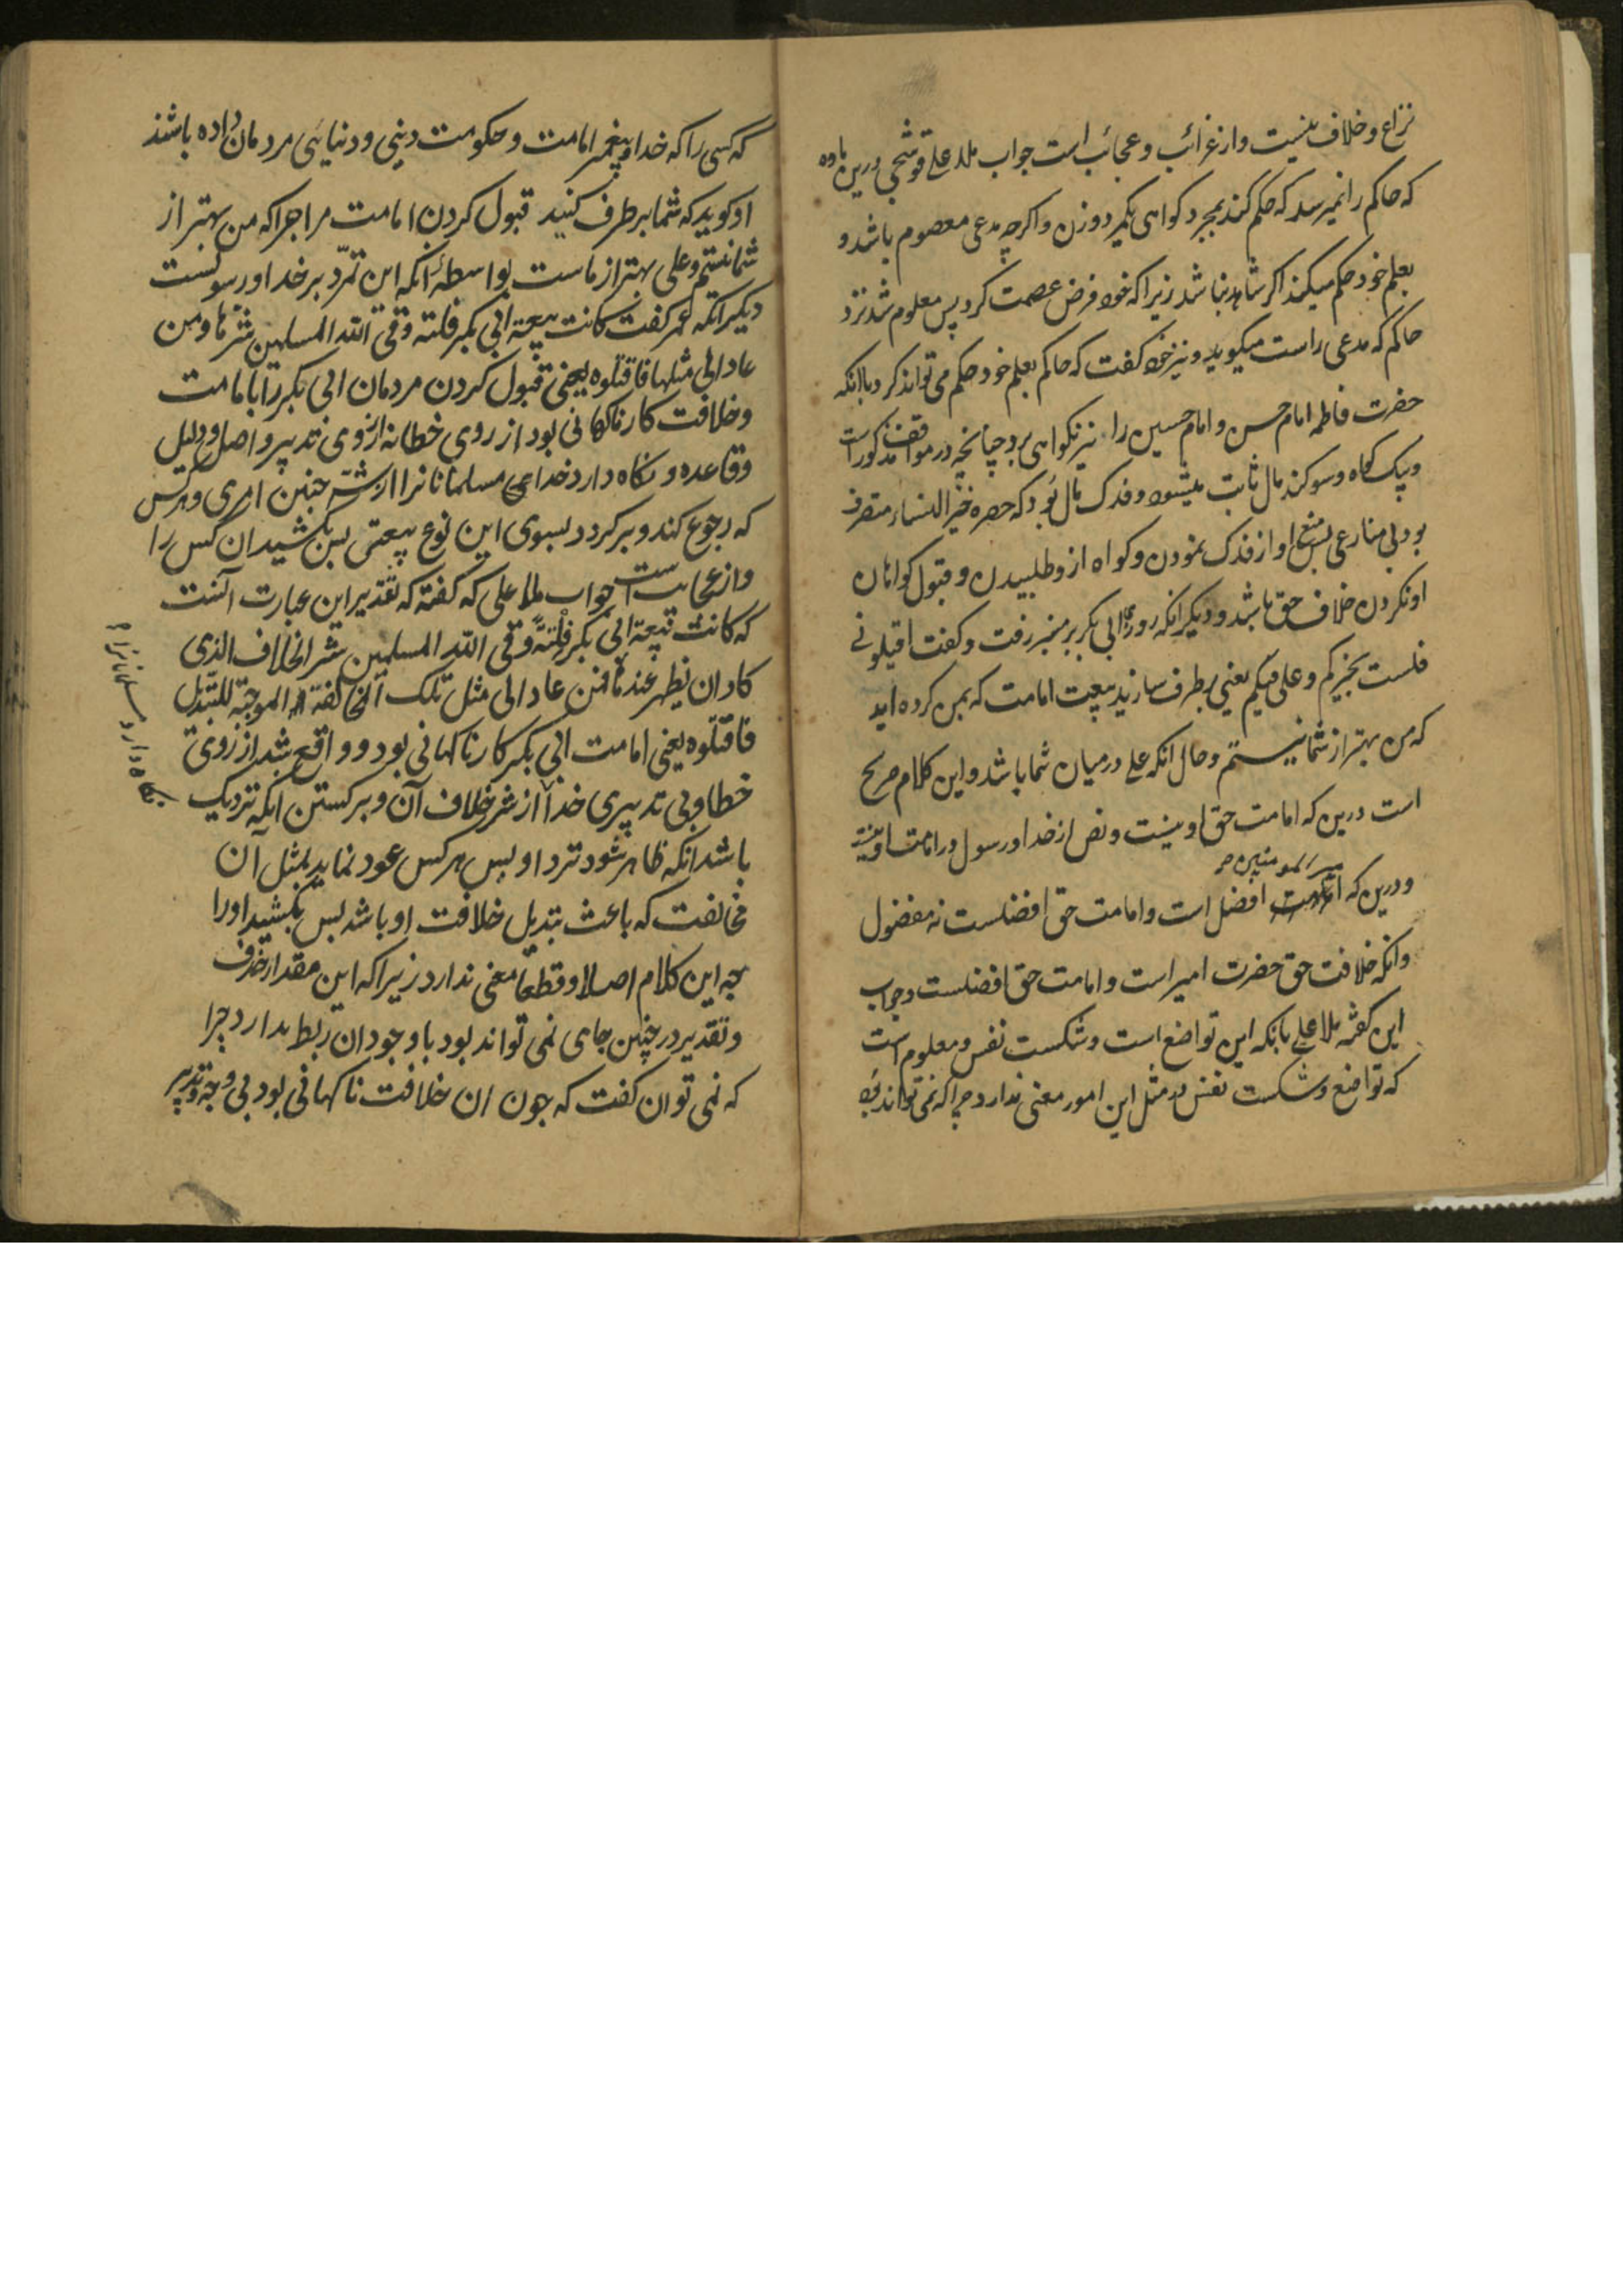 نزاع و خلاف نیست و از غرائب و عجائب است جواب ملا علی قوشجی درین ماده
که حاکم را نمیرسد که حکم کند بمجرد کواهی یکمرد و زن و اکرچه مدعی معصوم باشد و
بعلم خود حکم میکند اکر شاهد نباشد زیرا که خود فرض عصمت کرد پس معلوم شد نزد
حاکم که مدعی راست میکوید و نیز خود کفت که حاکم بعلم خود حکم می تواند کرد با آنکه
حضرت فاطمه امام حسن و امام حسین را نیز بکواهی برد چنانچه در مواقف مذکور است
و بیک کواه و سوکند مال ثابت میشود و فدک مال بود که حضره خیر النساء متصرف
بود بی منازعی پس منع او از فدک نمودن و کواه ازو طلبیدن و قبول کواهان
او نکردن خلاف حق باشد و دیکر آنکه روزی ابی بکر بر منبر رفت و کفت اقیلونی
فلست بخیرکم و علی فیکم یعنی بر طرف سازید بیعت امامت که بمن کرده اید
که من بهتر از شما نیستم و حال آنکه علی در میان شما باشد و این کلام صریح
است درین که امامت حق او نیست و نص از خدا و رسول در امامت او نیست
و درین که امیر المومنین افضل است و امامت حق افضلست نه مفضول
و آنکه خلافت حق حضرت امیر است و امامت حق افضلست و جواب
این کفته ملا علی بانکه این تواضع است و شکست نفس و معلوم است
که تواضع و شکست نفس در مثل این امور معنی ندارد چرا که نمی تواند بود
که کسی را که خدا و پیغمبر امامت و حکومت دینی و دنیائی مردمان داده باشد
او کوید که شما بر طرف کنید قبول کردن امامت مرا چرا که من بهتر از
شما نیستم و علی بهتر از ماست بواسطه آنکه این تمرّد بر خدا و رسولست
دیکر آنکه عمر کفت کانت بیعة ابی بکر فلتة وقی الله المسلمین شرّها و من
عاد الی مثلها فاقتلوه یعنی قبول کردن مردمان ابی بکر را بامامت
و خلافت کار ناکهانی بود از روی خطا نه از روی تدبیر و اصل و دلیل
و قاعده و نکاه دارد خدای مسلمانانرا از شر چنین امری و هرکس
که رجوع کند و بر کردد بسوی این نوع بیعتی پس بکشید آن کس را
و از عجایب است جواب ملا علی که کفته که تقدیر این عبارت آنست
که کانت بیعة ابی بکر فلتة وقی الله المسلمین شر الخلاف الذی
کاد ان یظهر عندها فمن عاد الی مثل تلک المخالفة الموجبة للتبدیل
فاقتلوه یعنی امامت ابی بکر کار ناکهانی بود و واقع شد از روی
خطا و بی تدبیری خدا از شر خلاف آن و برکشتن آنکه نزدیک
باشد آنکه ظاهر شود نزد او پس هرکس عود نماید بمثل آن
مخالفت که باعث تبدیل خلافت او باشد پس بکشید او را
چه این کلام اصلا و قطعا معنی ندارد زیرا که این مقدار حذف
و تقدیر در چنین جای نمی تواند بود با وجود آن ربط ندارد چرا
که نمی توان کفت که چون آن خلافت ناکهانی بود بی وجه و تدبیر
نکاه دارد مسلمانانرا